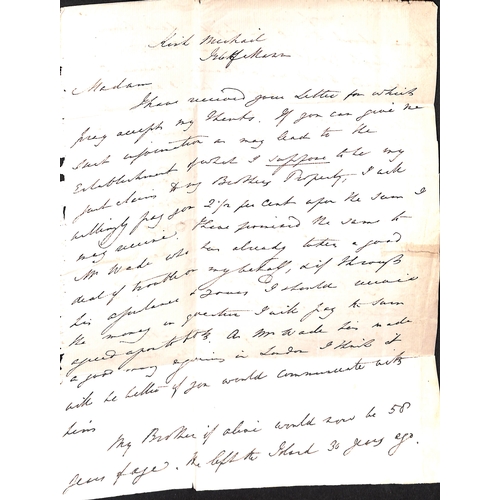 Kirk Michail
Isle of Mann
Madam
I have received your Letter for which
pray accept my Thanks. If you can give me
such information as may lead to the
Establishment of what I suppose to be my
just claim to my Brothers Property, I will
willingly pay you 2½ per cent upon the sum I
may receive. I have promised the same to
Mr Wade who has already taken a good
deal of trouble on my behalf, & if through
his assistance & yours I should receive
the money in question I will pay the sum
agreed upon to both. As Mr Wade has made
a good many inquiries in London I think it
will be better if you would communicate with
him
My Brother if alive would now be 58
years of age. He left the Island 30 years ago.